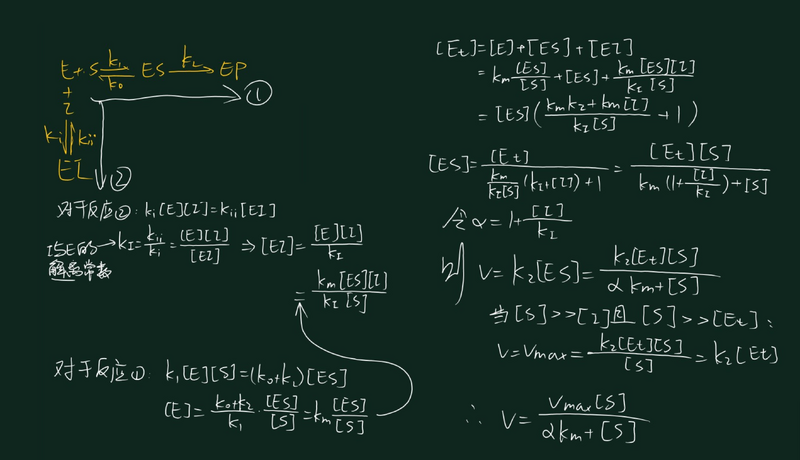 E + S ⇌ ES → EP
k₁ k₀ k₂
+
I ①
kᵢ kᵢᵢ
EI ②
对于反应②: kᵢ[E][I]=kᵢᵢ[EI]
I与E的解离常数 → k_I = kᵢᵢ/kᵢ = [E][I]/[EI] ⇒ [EI] = [E][I]/k_I
= km[ES][I]/(k_I[S])
对于反应①: k₁[E][S]=(k₀+k₂)[ES]
[E] = (k₀+k₂)/k₁ · [ES]/[S] = km [ES]/[S]
[Et]=[E]+[ES]+[EI]
= km [ES]/[S] + [ES] + km[ES][I]/(k_I[S])
= [ES]((km k_I + km[I])/(k_I[S]) + 1)
[ES] = [Et]/(km/(k_I[S]) (k_I+[I])+1) = [Et][S]/(km(1+[I]/k_I)+[S])
令α=1+[I]/k_I
则 v = k₂[ES] = k₂[Et][S]/(αkm+[S])
当[S]>>[I]且[S]>>[Et]:
v=vmax= k₂[Et][S]/[S] = k₂[Et]
∴ v = vmax[S]/(αkm+[S])